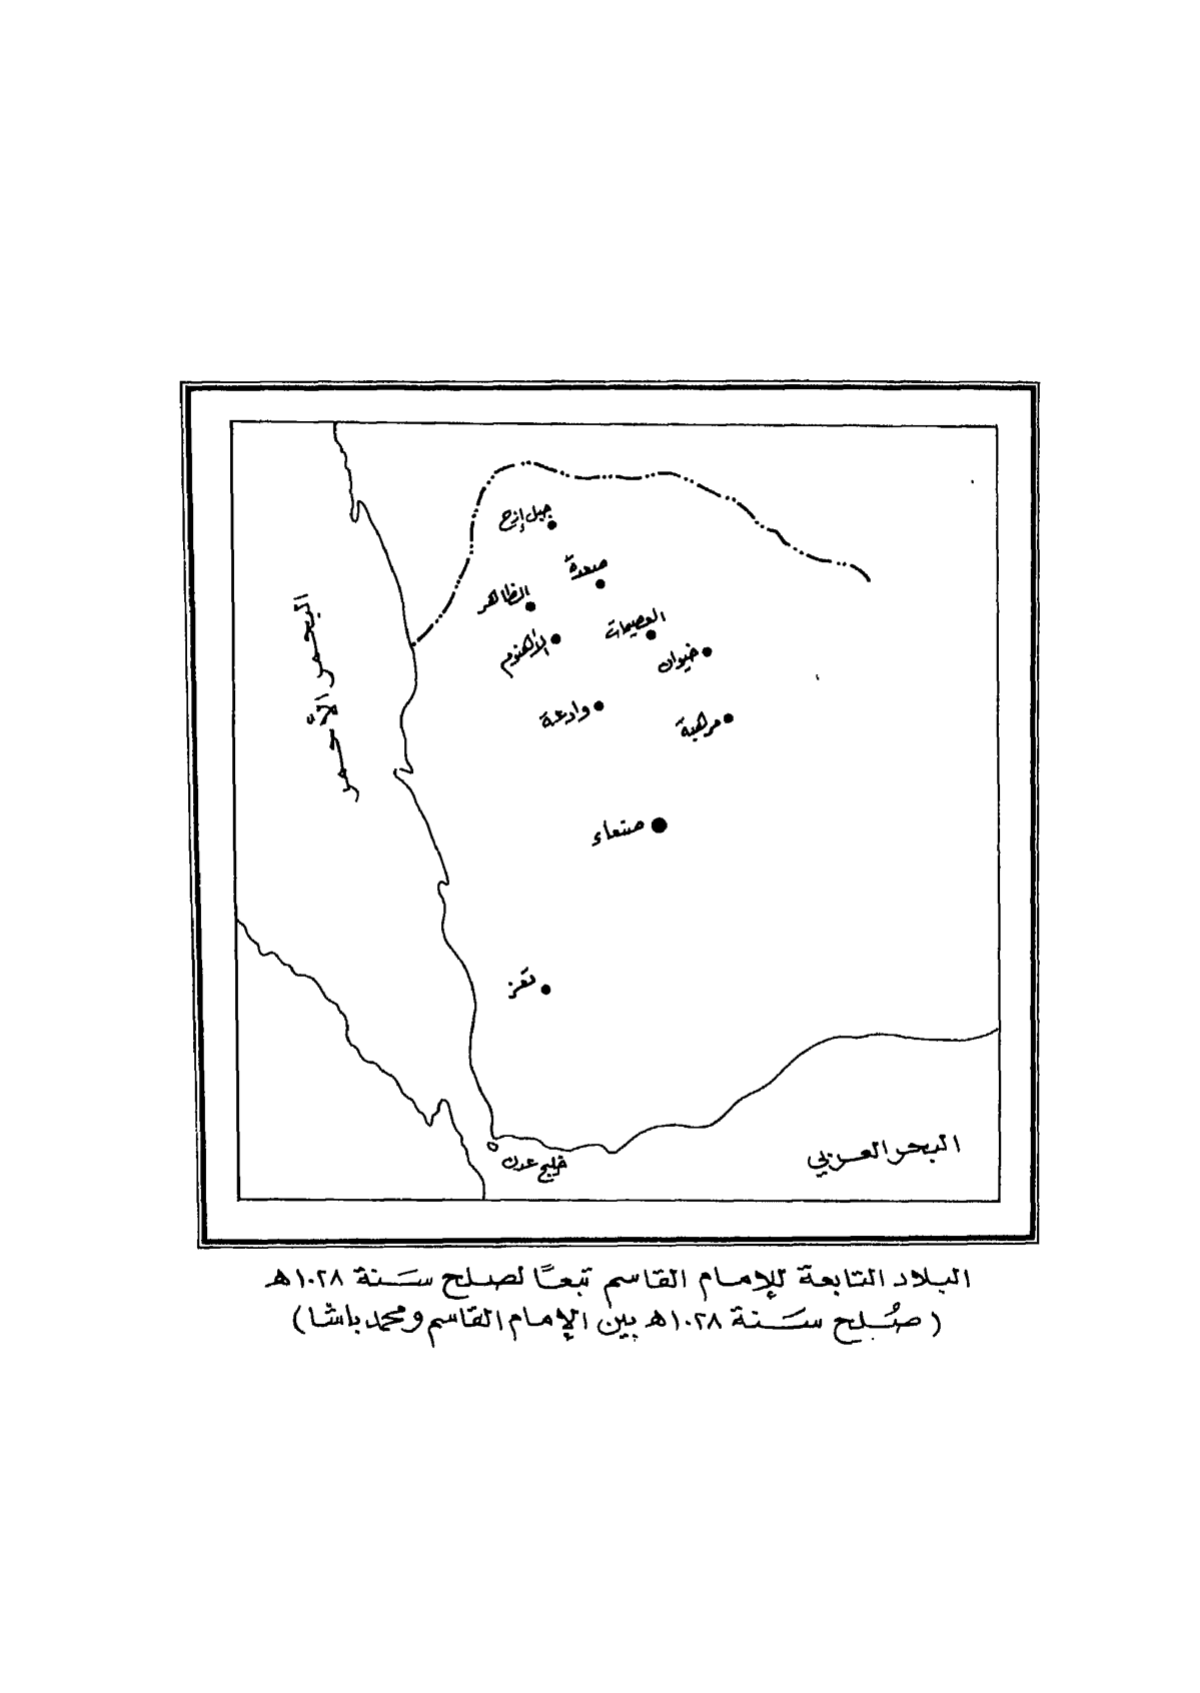 جبل إزح
صعدة
الظاهر
العصيمات
الاهنوم
خيوان
وادعة
مرهبة
البحر الأحمر
صنعاء
تعز
البحر العربي
خليج عدن
البلاد التابعة للإمام القاسم تبعًا لصلح سَنة ١٠٢٨هـ
(صُلح سَنة ١٠٢٨هـ بين الإمام القاسم ومحمد باشا)